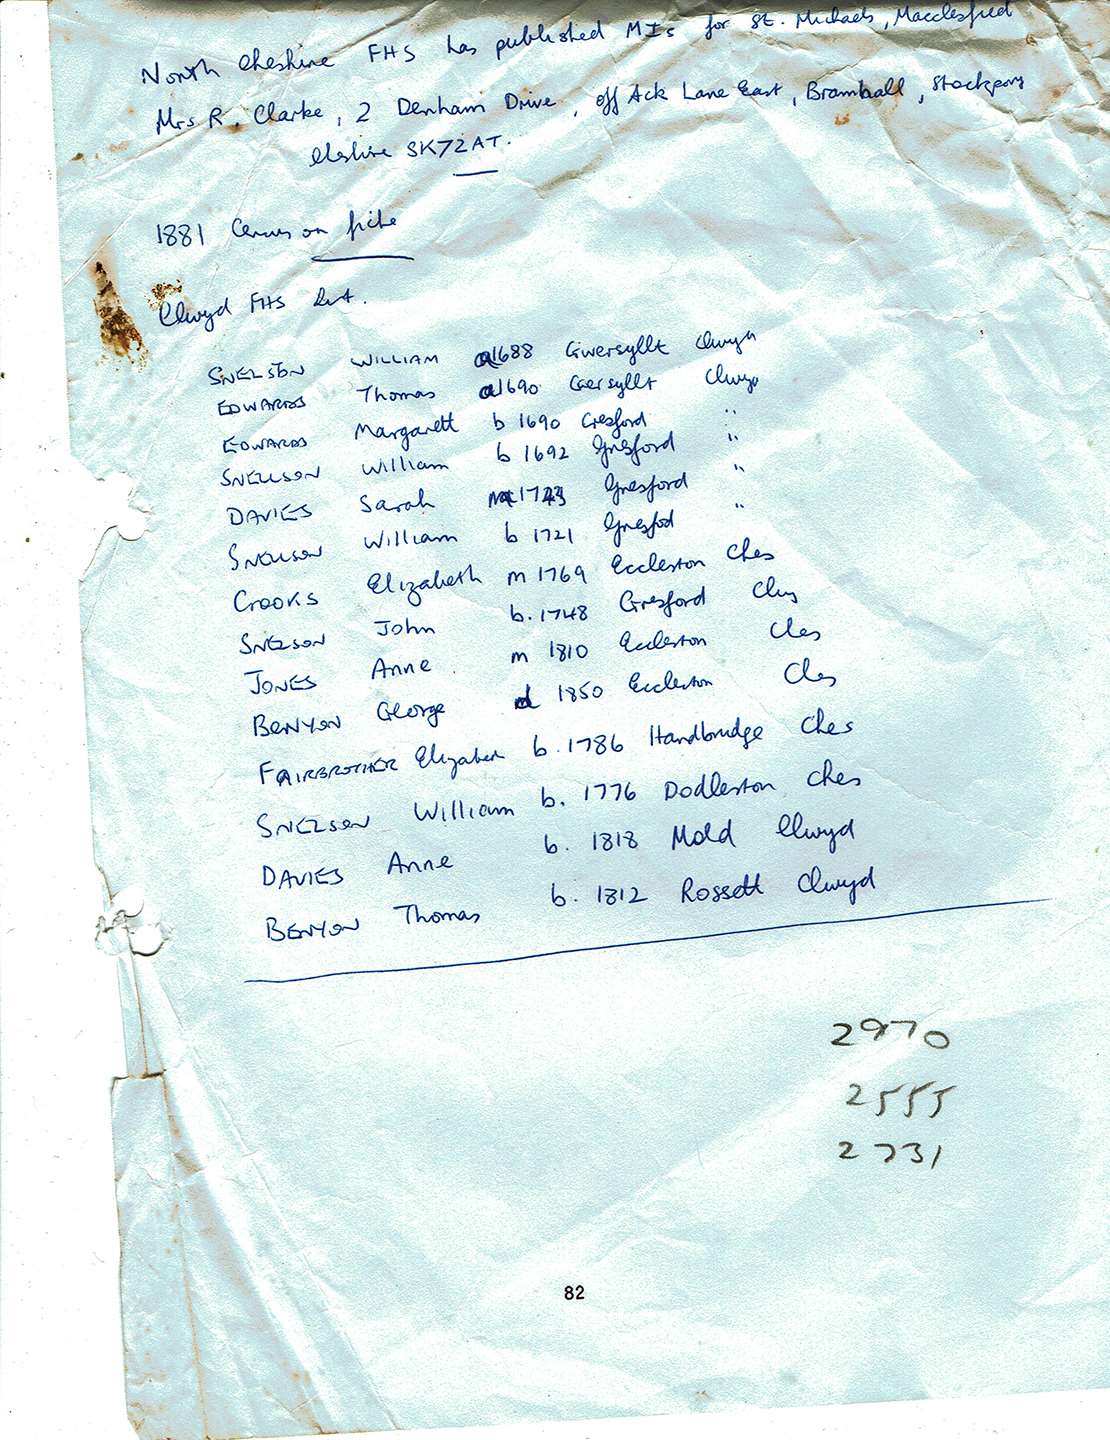 North Cheshire FHS has published MIs for St. Michaels, Macclesfied
Mrs R. Clarke, 2 Denham Drive, off Ack Lane East, Bramhall, Stockport
Cheshire SK72AT.
1881 Census on fiche
Clwyd FHS list.
SNELSON WILLIAM a1688 Gwersyllt Clwyd
EDWARDS Thomas a1690 Gersyllt Clwyd
EDWARDS Margarett b 1690 Gresford "
SNELLSON William b 1692 Gresford "
DAVIES Sarah m 1743 Gresford "
SNELLSON William b 1721 Gresfod "
CROOKS Elizabeth m 1769 Eccleston Ches
SNELSON John b. 1748 Gresford Clwy
JONES Anne m 1810 Eccleston Ches
BENYON George d 1850 Eccleston Ches
FAIRBROTHER Elizabeth b. 1786 Handbridge Ches
SNELSON William b. 1776 Dodleston Ches
DAVIES Anne b. 1818 Mold Clwyd
BENYON Thomas b. 1812 Rossett Clwyd
2970
2555
2731
82